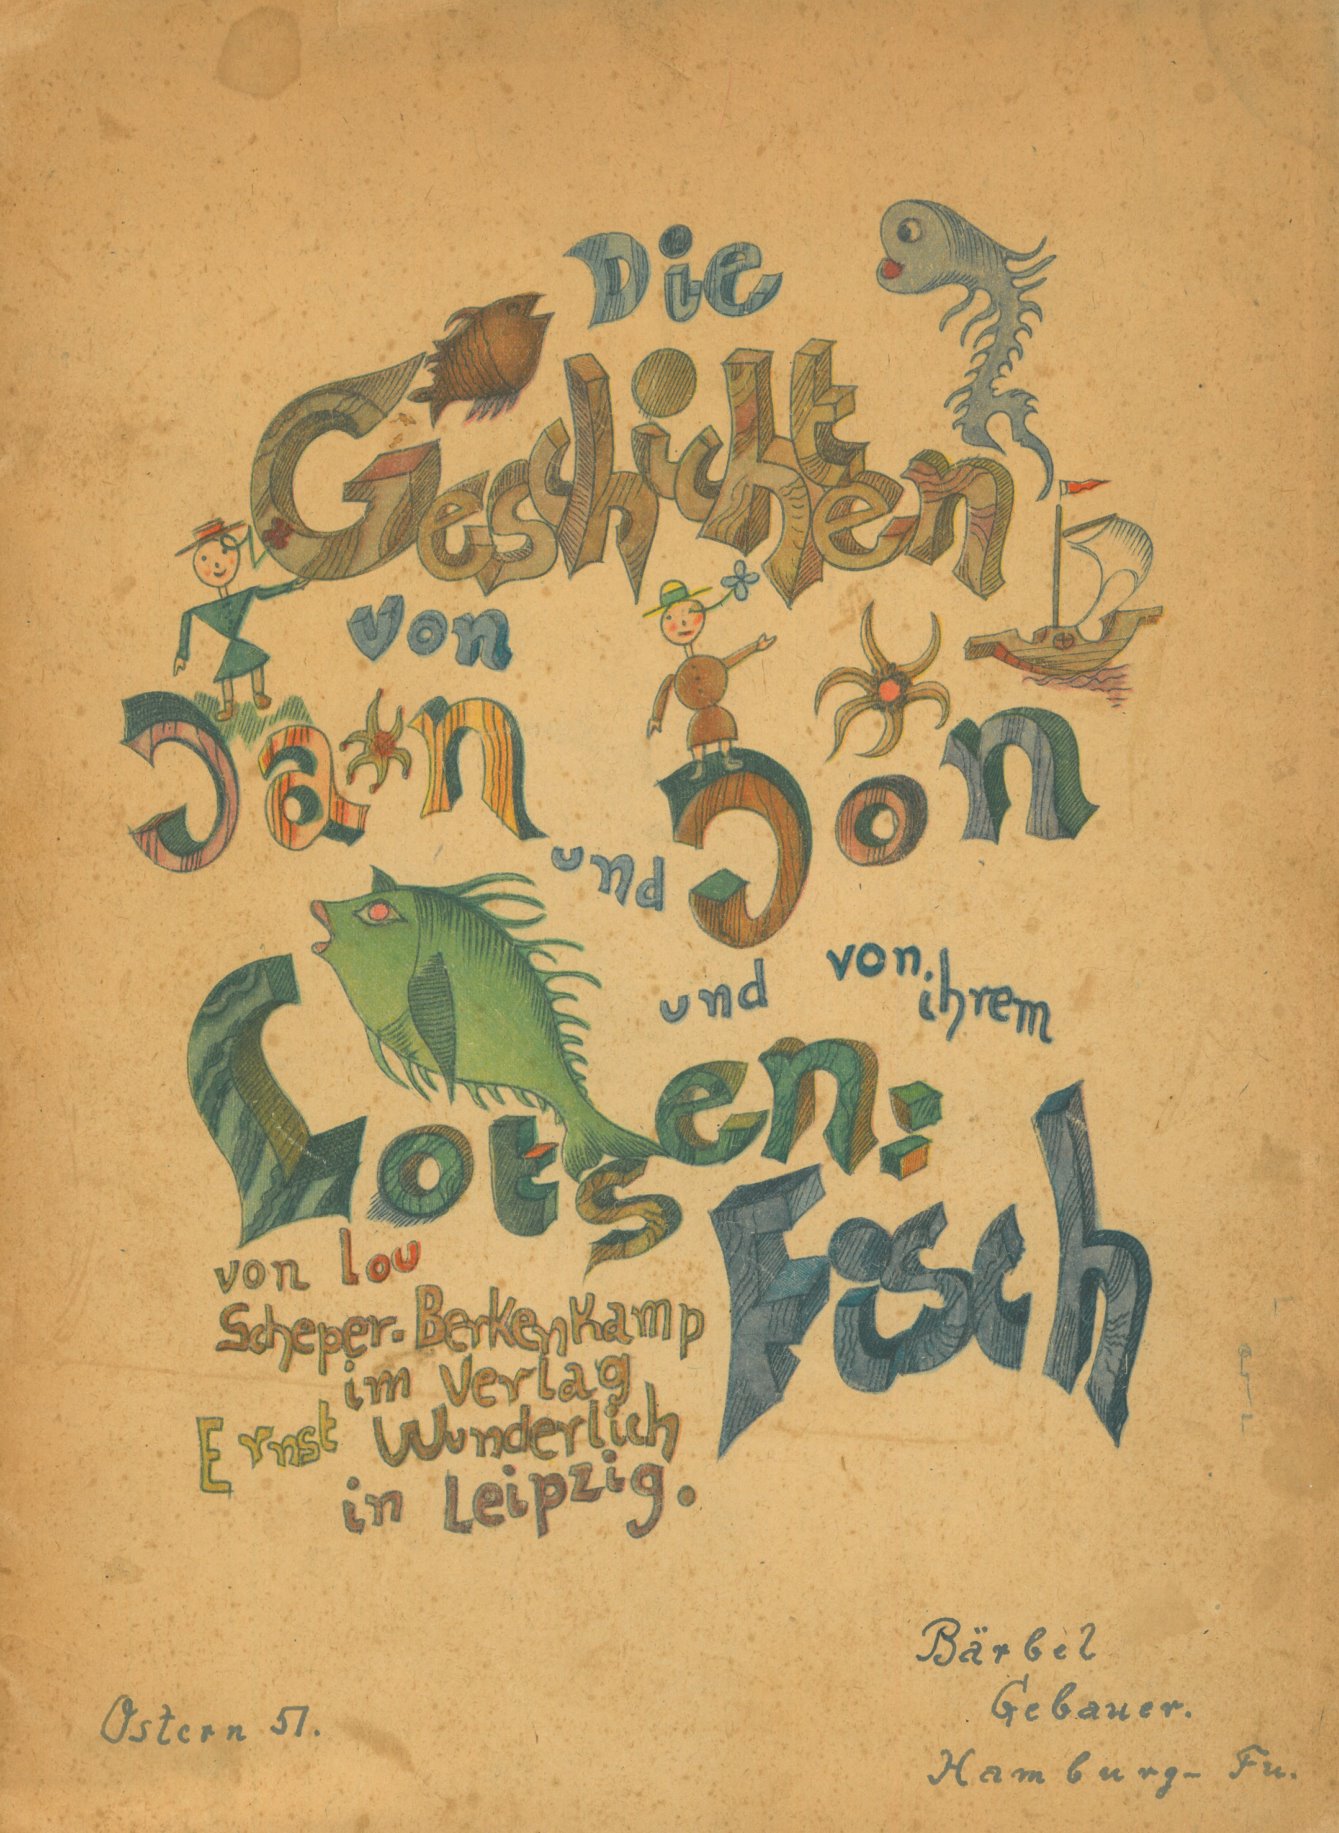 Die
Geschichten
von
Jan und Jon
und von ihrem
Lotsen=
Fisch
von Lou
Scheper-Berkenkamp
im Verlag
Ernst Wunderlich
in Leipzig.
Bärbel
Gebauer.
Ostern 51.
Hamburg- Fu.